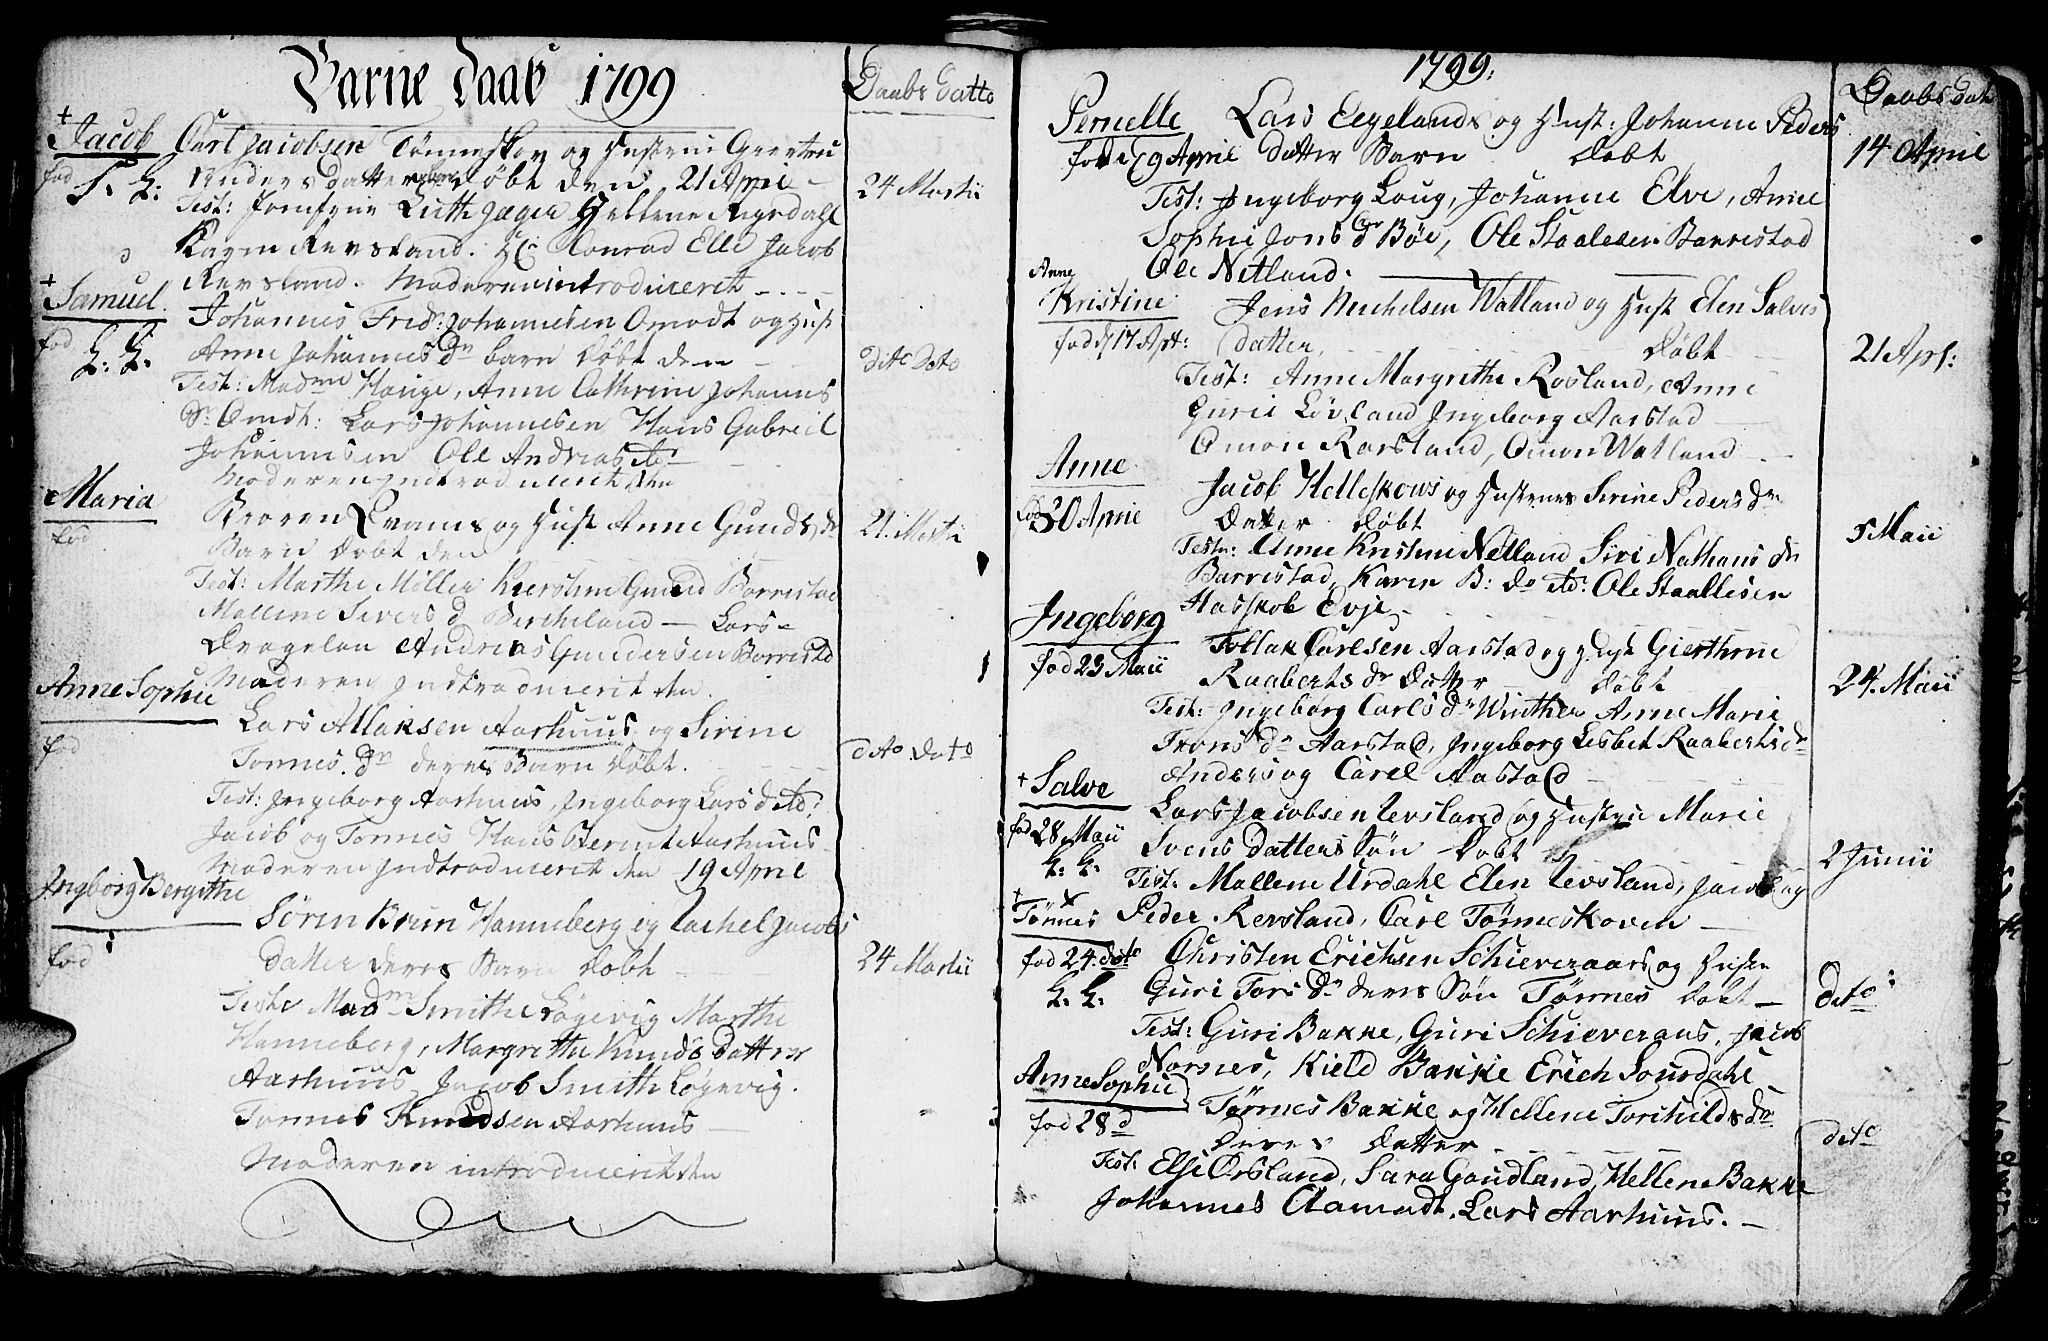 Barne Daab 1799
Daabs Datto
+ Jacob
fød
Carl Jacobsen Tønneskov og Hustrue Geertru
Anders datters døbt den 21 April
24 Martii
Test: Jomfrue Luth Jæger Hellene
Karen Revsland. Conrad Elle Jacob
Revsland. Moderen introduceret
+ Samuel
fød
Johannes Frid: Johannesen Omodt og Hust
Anne Johannes Dn barn døbt den
dito dato
Test: Madme Hauge, Anne Cathrine Johannes
Dr Omdt: Lars Johannesen Hans Gabriel
Johannesen Ole Andreas
Moderen Indtroduceret den
Maria
fød
og Hust Anne Gunds Dr
Barn døbt den
Test: Marthe Møller Kierstine Gund Barrestad
Mallene Sivers d Bircheland - Lars
Andreas Gundersen Barrestad
Moderen Indtroduceret den
Anne Sophie
fød
Lars Allaksen Aarhuus og Sirine
Tønnes. Dn deres Barn Døbt.
dito dato
Test: Ingeborg Aarhuus, Ingeborg Lars d
Jacob og Tønnes Hans Aarhuus
Moderen Indtroduceret den 19 April
Ingborg Bergithe
fød
Søren Brun Hanneberg og Rachel Jacobs
datter deres Barn døbt
24 Martii
Test: Madm Smith Løgevig Marthe
Hanneberg, Margrethe Knuds datter
Aarhuus Jacob Smith Løgevig.
Tønnes Knudsen Aarhuus
Moderen introduceret den
1799:
Daabs dat
Pernelle
fød 9 April
Lars Eegelands og Hust: Johanne Peders
datter Barn døbt
14 April
Test: Ingeborg Loug, Johanne Elve, Anne
Sophie Jons Dr Bøe, Ole Staalesen Barrestad
Ole Netland.
Anne
Kristine
fød d 17 Apr:
Jens Michelsen Watland og Hust Elen Salves
datter, døbt
21 Apr:
Test: Anne Margrethe Rosland, Anne
Gurie Løvland Ingeborg Aarstad
Omon Rarsland, Omon Watland
Anne
fød 30 April
Jacob Helleskows og Hustrues Sirine Peders dr
Datter døbt
5 Maii
Test: Anne Kristine Netland Siri Nathans dr
Barrestad, Karen B: do Ole Staallesen
Hasskob Evje
Ingeborg
fød 23 Maii
Tollak Carlsen Aarstad og Hust Gierthrue
Raaberts dr datter døbt
24. Maii
Test: Ingeborg Carls dr Winther Anne Marie
Trons dr Aarstad, Ingeborg Lisbet Raaberts dr
Anders og Carel Aastad
+ Salve
fød 28 Maii
Lars Jacobsen Revsland og Hustrue Marie
Svens Datters Søn døbt
2 Junii
Test: Mallene Urdahl Elen Revsland, Jacob og
Peder Revsland, Carl Tønneskoven
+ Tønnes
fød 24. dito
Christen Erichsen Schieveraas og Hustru
Guri Tors Dr deres Søn Tønnes døbt
dito
Test: Guri Bakke, Guri Schieveraas, Jacob
Norsnes, Kield Bakke Erich Sourdahl
Anne Sophie
fød 28 d
Tønnes Bakke og Hellene Torchilds dr
Deres Datter
dito
Test: Else Orsland, Sara Goudland, Hellene Bakke
Johannes Aamodt. Lars Aarhuus.